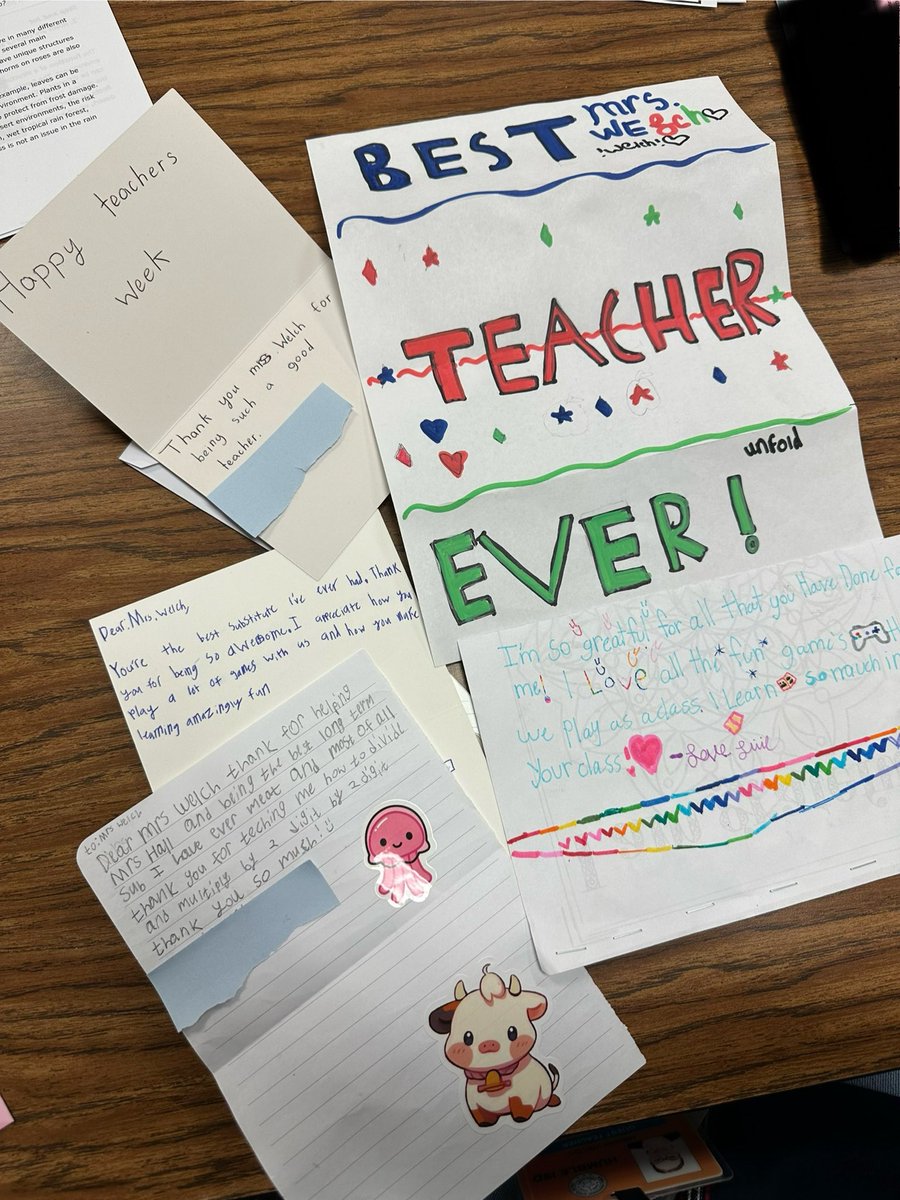 e in many different
several main
ave unique structures
horns on roses are also
example, leaves can be
vironment. Plants in a
protect from frost damage.
sert environments, the risk
, wet tropical rain forest,
s is not an issue in the rain
Happy teachers
week
Thank you miss Welch for
being such a good
teacher.
BEST mrs.
WElch
!welch!
TEACHER
unfold
EVER!
Dear.Mrs.Welch,
You're the best substitute I've ever had. Thank
you for being so awesome. I appriciate how you
play a lot of games with us and how you make
learning amazingly fun
I'm so greatful for all that you Have Done fo
me! I Love all the *fun* game's
we Play as a class. I Learn so much in
Your class! -Love
to: Mrs Welch
Dear Mrs Welch thank for helping
Mrs Hall and being the best long term
sub I have ever meat and most of all
thank you for teching me how to dividi
and multiply by 2 digit by 2 digit
thank you so mush!
HUMBLE ISD